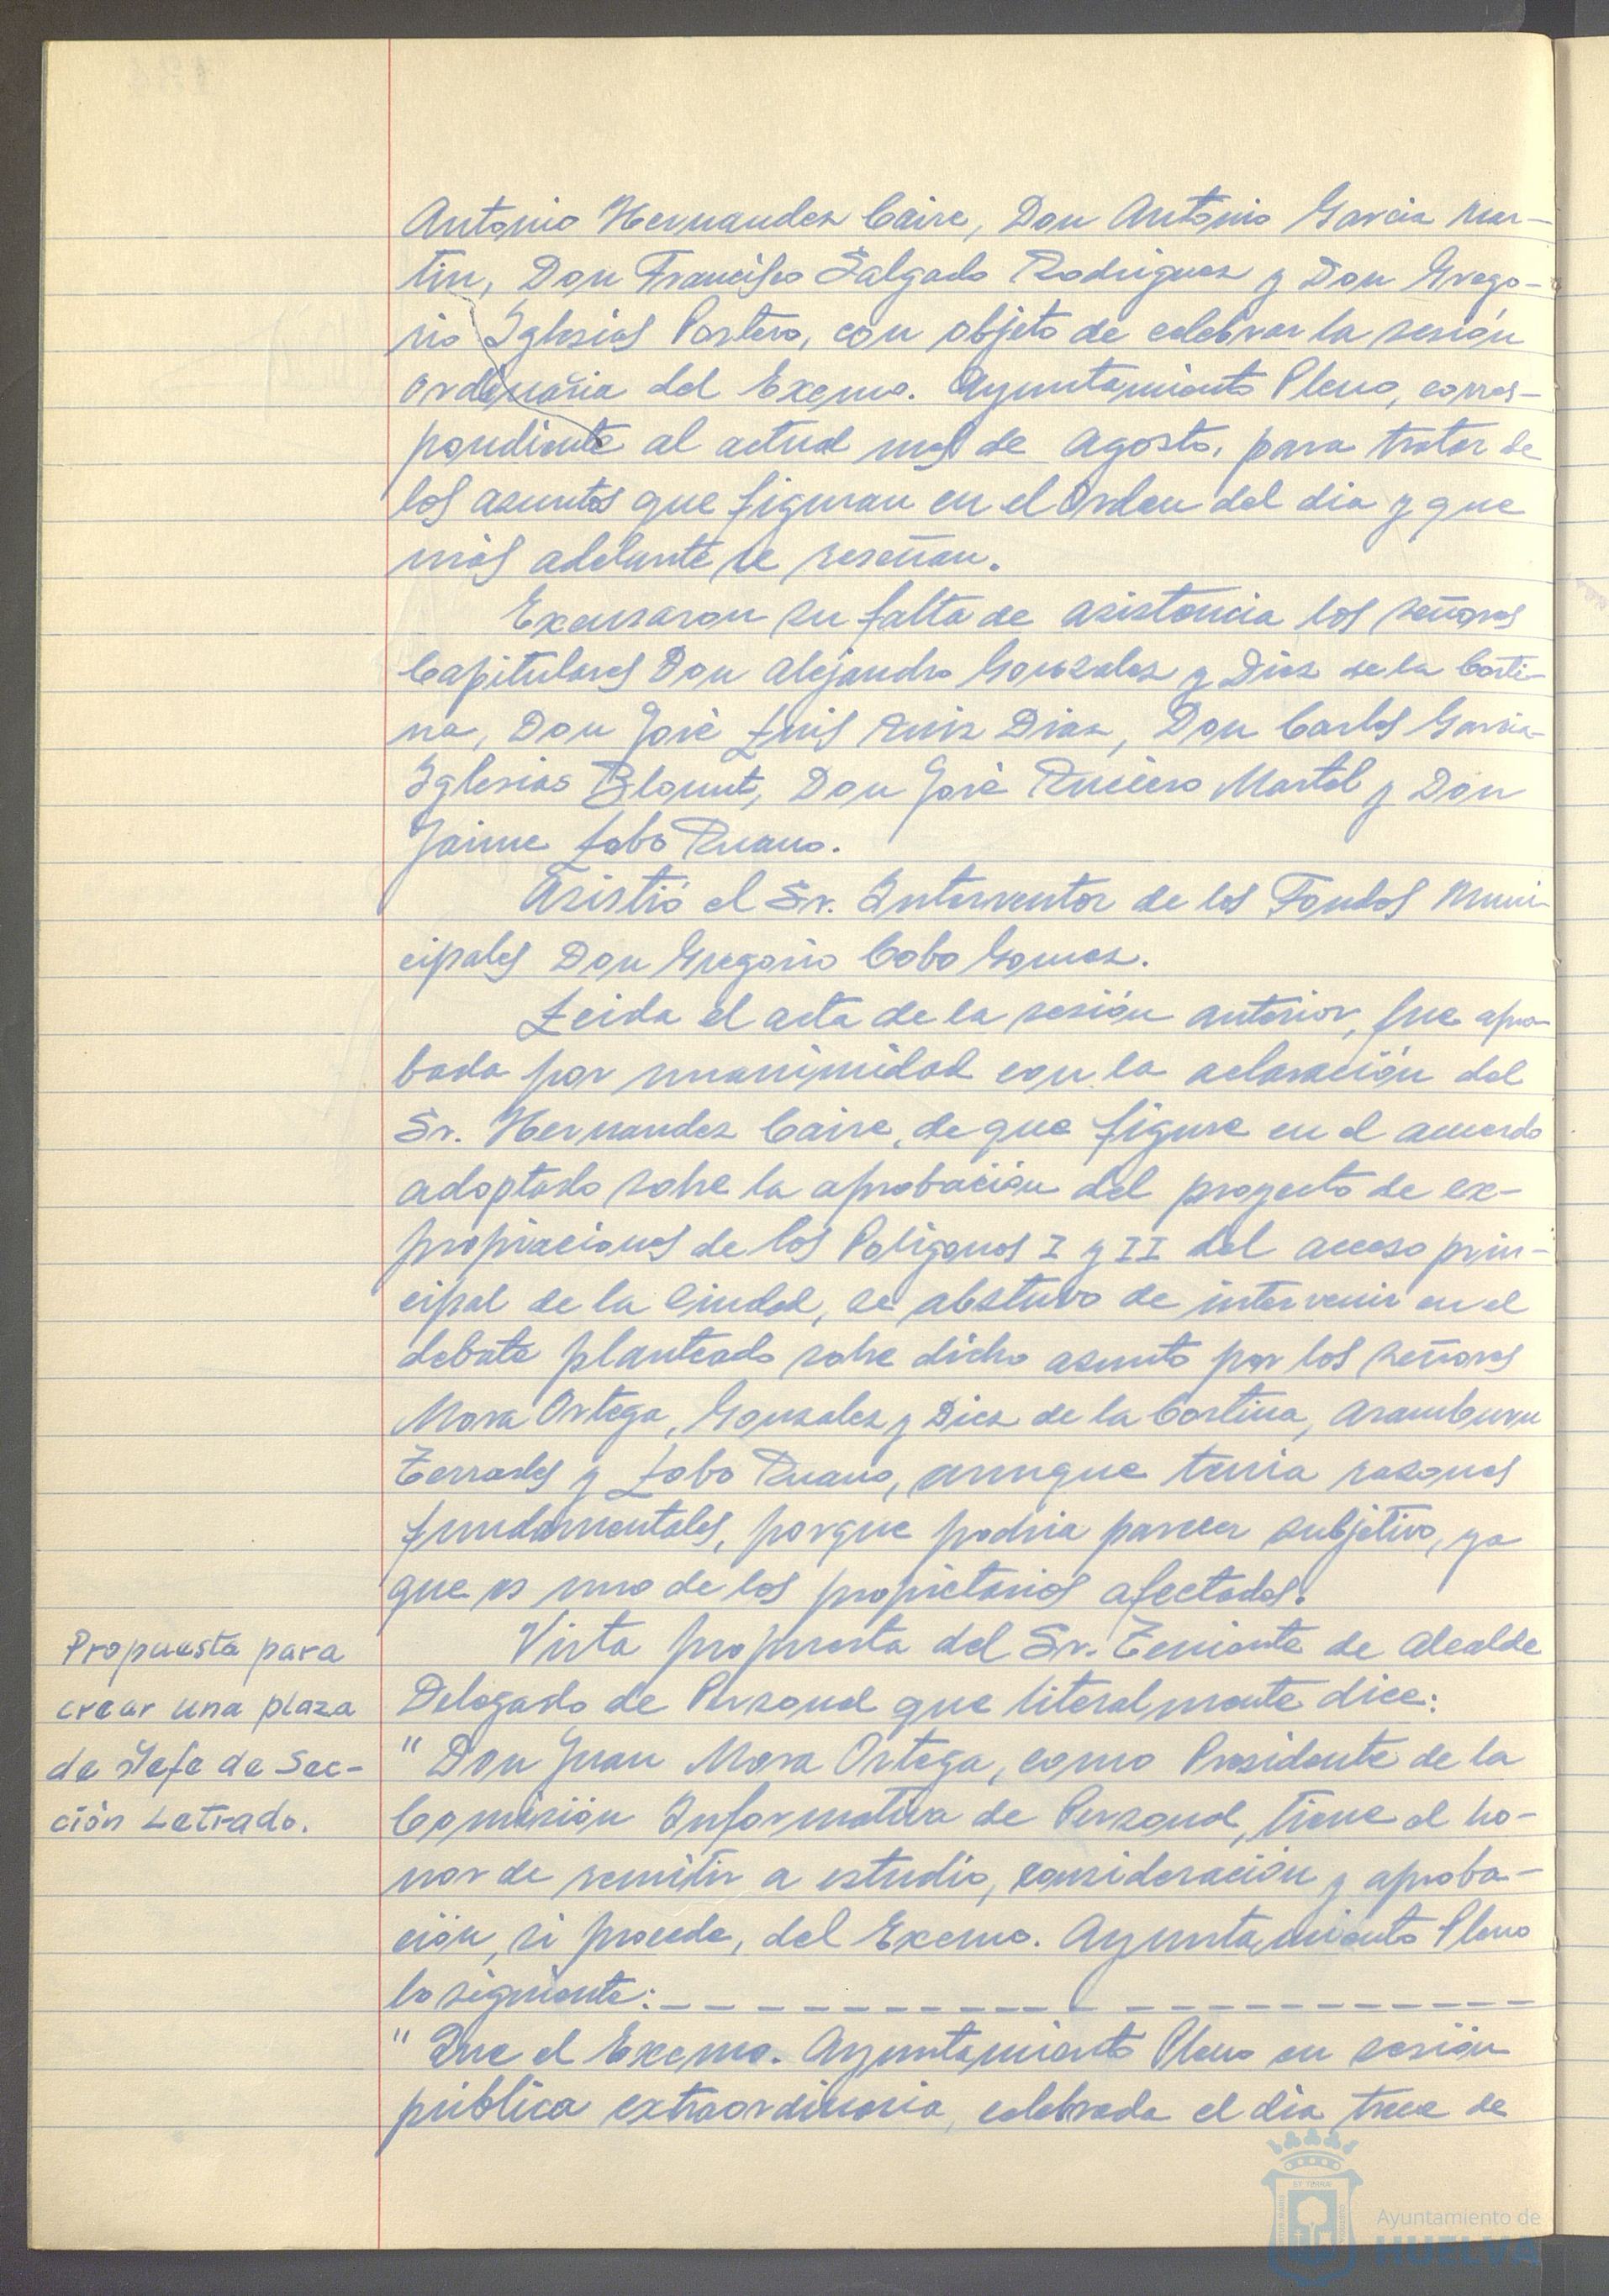 Antonio Hernandez Caire, Don Antonio Garcia Mar-
tin, Don Francisco Salgado Rodriguez y Don Grego-
rio Iglesias Portero, con objeto de celebrar la sesión
ordinaria del Excmo. Ayuntamiento Pleno, corres-
pondiente al actual mes de agosto, para tratar de
los asuntos que figuran en el Orden del dia y que
más adelante se reseñan.
Excusaron su falta de asistencia los señores
Capitulares Don Alejandro Gonzalez y Diez de la Corti-
na, Don José Luis Ruiz Diaz, Don Carlos Garcia-
Iglesias Blount, Don José Rucero Martel y Don
Jaime Lobo Ruano.
Asistió el Sr. Interventor de los Fondos Muni-
cipales Don Gregorio Cobo Gomez.
Leida el acta de la sesión anterior, fue apro-
bada por unanimidad con la aclaración del
Sr. Hernandez Caire, de que figure en el acuerdo
adoptado sobre la aprobación del proyecto de ex-
propiaciones de los Poligonos I y II del acceso prin-
cipal de la Ciudad, se abstuvo de intervenir en el
debate planteado sobre dicho asunto por los señores
Mora Ortega, Gonzalez y Diez de la Cortina, Aramburu
Terrades y Lobo Ruano, aunque tenia razones
fundamentales, porque podria parecer subjetivo, ya
que es uno de los propietarios afectados.
Propuesta para
crear una plaza
de Jefe de Sec-
ción Letrado.
Vista propuesta del Sr. Teniente de Alcalde
Delegado de Personal que literalmente dice:
"Don Juan Mora Ortega, como Presidente de la
Comisión Informativa de Personal, tiene el ho-
nor de remitir a estudio, consideración y aproba-
ción, si procede, del Excmo. Ayuntamiento Pleno
lo siguiente: _ _ _ _ _ _ _ _ _ _ _ _ _ _ _ _ _ _ _ _ _
"Que el Excmo. Ayuntamiento Pleno en sesión
pública extraordinaria, celebrada el dia trece de
Ayuntamiento de
HUELVA